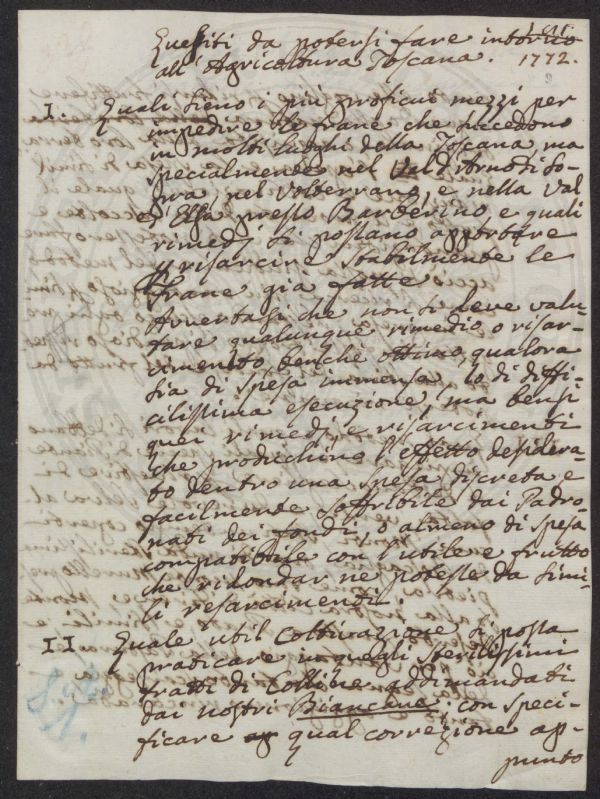 Quesiti da potersi fare intorno
all'Agricoltura Toscana. 1772.
I. Quali sieno i più proficui mezzi per
impedire le frane che succedono
in molti luoghi della Toscana, ma
specialmente nel Val d'Arno di So-
pra, nel Volterrano, e nella Val
d'Elsa presso Barberino, e quali
rimedj si possano apportare
p risarcire stabilmente le
Frane già fatte
Avvertasi che non si deve valu-
tare qualunque rimedio, o risar-
cimento, benchè ottimo, qualora
sia di spesa immensa, o di diffi-
cilissima esecuzione, ma bensì
quei rimedj, e risarcimenti
che produchino l'effetto desidera-
to dentro una spesa discreta e
facilmente soffribile dai Padro-
nati dei fondi, o almeno di spesa
compatibile con l'utile e frutto
che ridondar ne potesse da simi-
li resarcimenti.
II. Quale util Coltivazione si possa
praticare in quegli sterilissimi
tratti di Colline addimandati
dai nostri Biancane: con speci-
ficare qual correzione ap-
punto